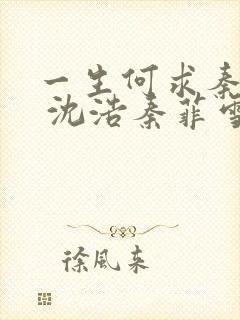 一生何求秦
沈浩秦菲雪
徐风来